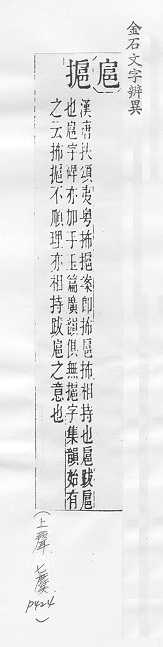 金石文字辨異
扈
摳
漢唐扶頌夷粤拂摳案即拂扈拂相持也扈跋扈
也扈字碑亦加手玉篇廣韻俱無摳字集韻始有
之云拂摳不順理亦相持跋扈之意也
(上聲 七麌 p424)